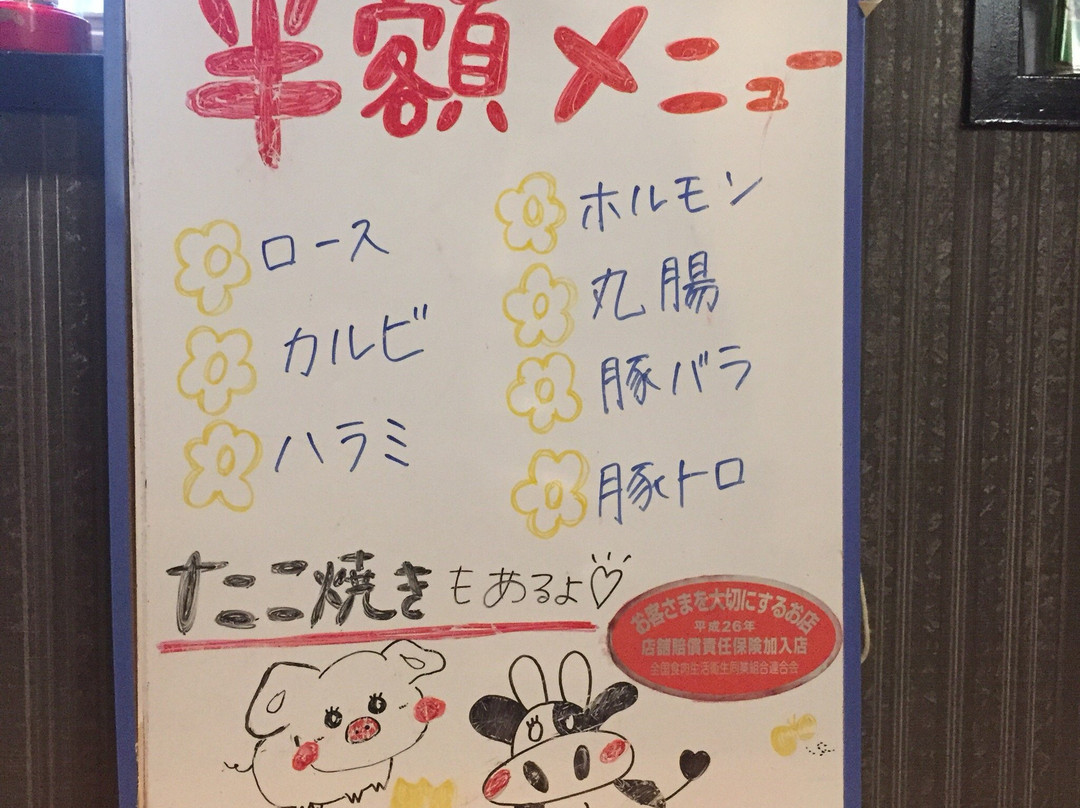 半額メニュー
ロース
カルビ
ハラミ
ホルモン
丸腸
豚バラ
豚トロ
たこ焼きもあるよ♡
お客さまを大切にするお店
平成26年
店舗賠償責任保険加入店
全国食肉生活衛生同業組合連合会